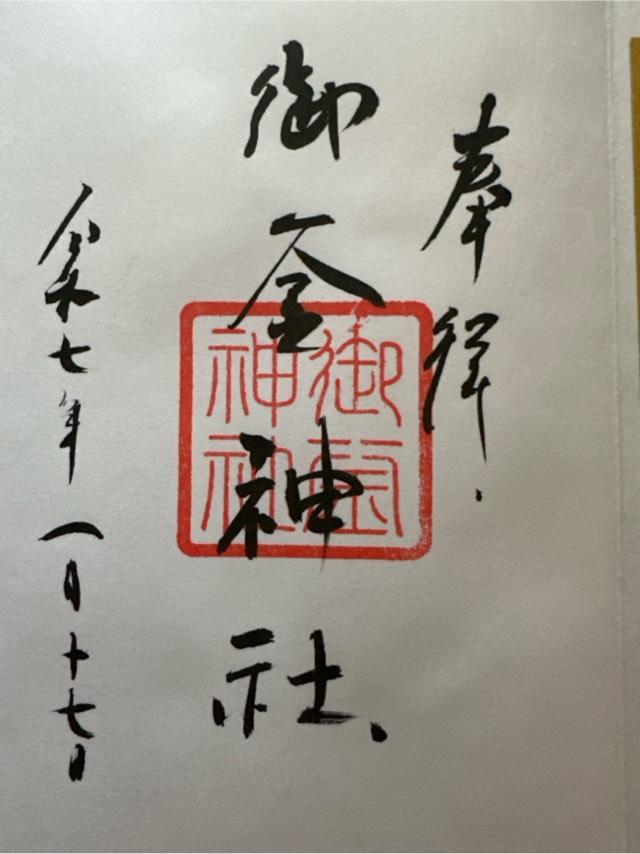 奉拝
御金神社
御金
神社
令和七年八月十七日